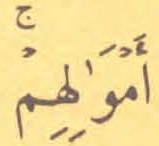 أَمْوَٰلِهِمْۚ